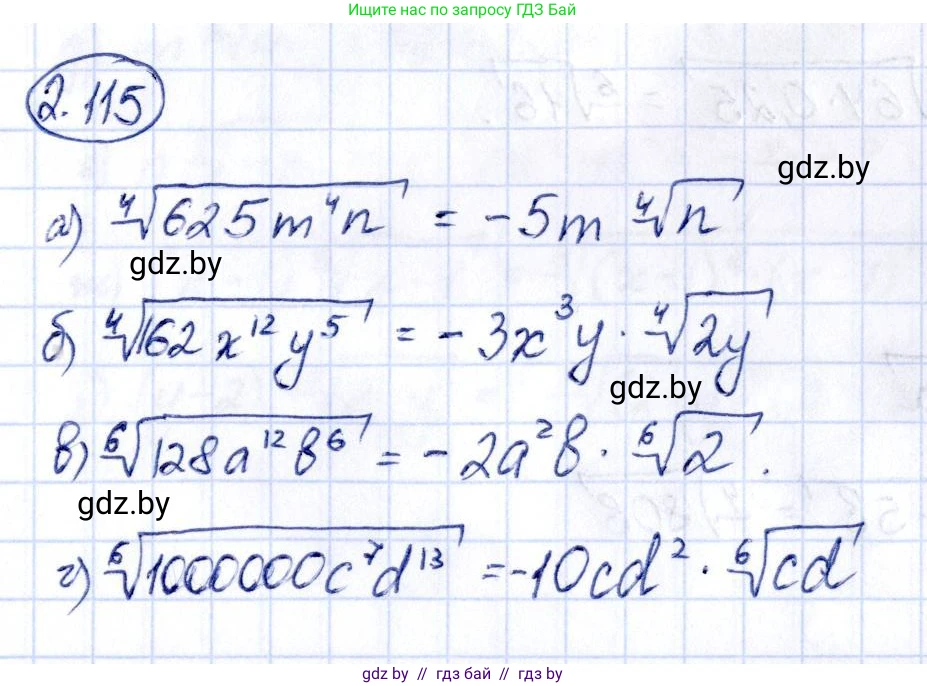 Ищите нас по запросу ГДЗ Бай
2.115
gdz.by
а) ⁴√(625m⁴n) = -5m ⁴√n
gdz.by
б) ⁴√(162x¹²y⁵) = -3x³y · ⁴√(2y)
gdz.by
в) ⁶√(128a¹²b⁶) = -2a²b · ⁶√2.
gdz.by
г) ⁶√(1000000c⁷d¹³) = -10cd² · ⁶√(cd)
gdz.by // гдз бай // gdz.by